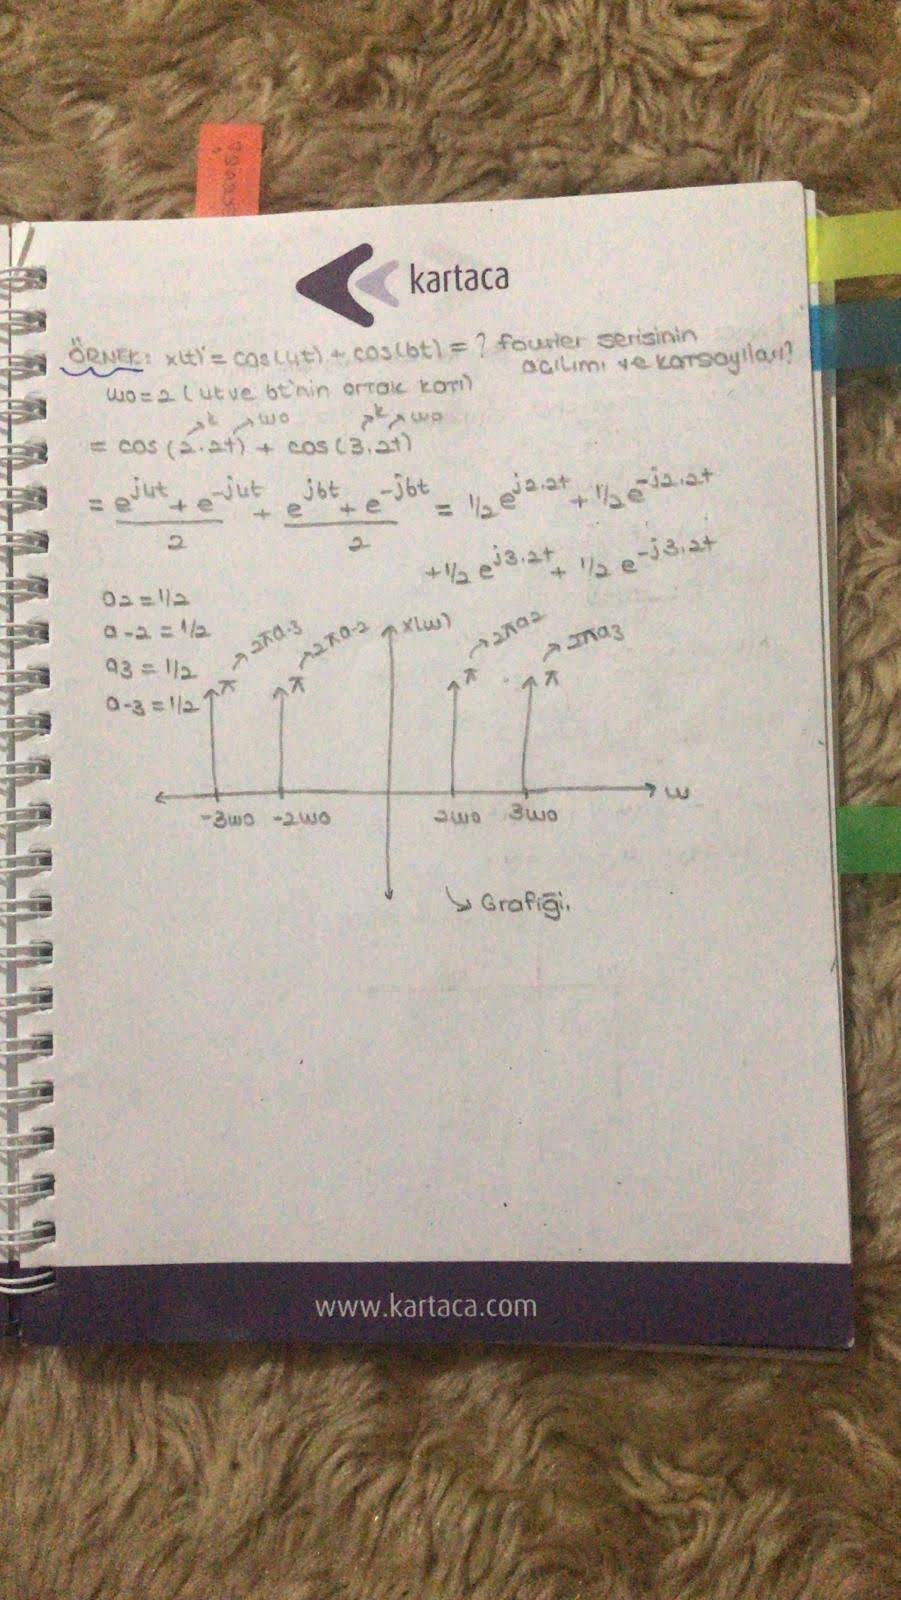 kartaca
ÖRNEK: x(t) = cos(4t) + cos(6t) = ? fourier serisinin
açılımı ve katsayıları?
ω0 = 2 (4t ve 6t'nin ortak katı)
k ω0 k ω0
= cos(2.2t) + cos(3.2t)
= e^j4t + e^-j4t / 2 + e^j6t + e^-j6t / 2 = 1/2 e^j2.2t + 1/2 e^-j2.2t
+ 1/2 e^j3.2t + 1/2 e^-j3.2t
a2 = 1/2
a-2 = 1/2
a3 = 1/2
a-3 = 1/2
x(ω)
2πa-3 2πa-2 2πa2 2πa3
π π π π
-3ω0 -2ω0 2ω0 3ω0 ω
↳ Grafiği.
www.kartaca.com